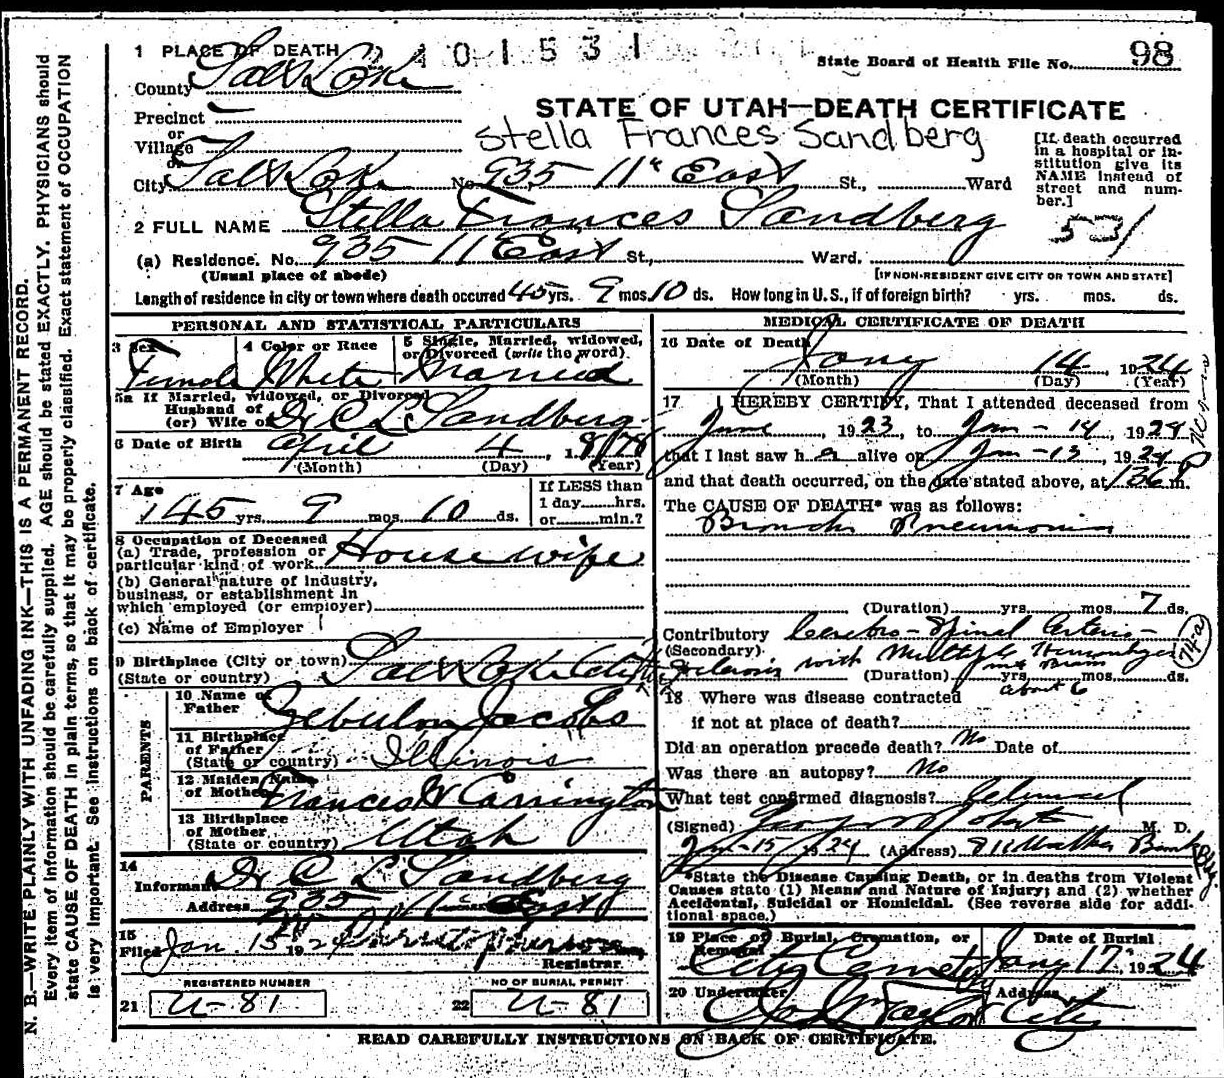 1 PLACE OF DEATH 2401531
State Board of Health File No. 98
County Salt Lake
STATE OF UTAH—DEATH CERTIFICATE
Precinct
or
Village
or
Stella Frances Sandberg
[If death occurred in a hospital or institution give its NAME instead of street and number.]
City Salt Lake No. 935 11" East St., Ward
2 FULL NAME Stella Frances Sandberg
531
(a) Residence. No. 935 11 East St., Ward.
(Usual place of abode) [IF NON-RESIDENT GIVE CITY OR TOWN AND STATE]
Length of residence in city or town where death occured 45 yrs. 9 mos. 10 ds. How long in U. S., if of foreign birth? yrs. mos. ds.
PERSONAL AND STATISTICAL PARTICULARS
3 Sex 4 Color or Race 5 Single, Married, widowed, or Divorced (write the word).
Female White Married
5a If Married, widowed, or Divorced
Husband of
(or) Wife of C L Sandberg
6 Date of Birth April 4, 1878
(Month) (Day) (Year)
7 Age 45 yrs. 9 mos. 10 ds.
If LESS than
1 day hrs.
or min.?
8 Occupation of Deceased
(a) Trade, profession or
particular kind of work Housewife
(b) General nature of industry,
business, or establishment in
which employed (or employer)
(c) Name of Employer
9 Birthplace (City or town) Salt Lake City
(State or country)
PARENTS
10 Name of
Father Zebulon Jacobs
11 Birthplace
of Father
(State or country) Illinois
12 Maiden Name
of Mother Frances W Carrington
13 Birthplace
of Mother
(State or country) Utah
14
Informant C L Sandberg
Address 935 11 East
15
Filed Jan. 15 1924
Registrar
REGISTERED NUMBER
21 U-81
NO OF BURIAL PERMIT
22 U-81
MEDICAL CERTIFICATE OF DEATH
16 Date of Death Jany 14, 1924
(Month) (Day) (Year)
17 I HEREBY CERTIFY, That I attended deceased from
June, 1923, to Jan-14, 1924
that I last saw h er alive on Jan-13, 1924
and that death occurred, on the date stated above, at 136 P m.
The CAUSE OF DEATH* was as follows:
Broncho Pneumonia
(Duration) yrs. mos. 7 ds.
Contributory Cerebro-Spinal Arterio-
(Secondary)
Sclerosis with Multiple Hemorrhages 74-a
(Duration) yrs. mos. ds.
about 6
18 Where was disease contracted
if not at place of death?
Did an operation precede death? No Date of
Was there an autopsy? No
What test confirmed diagnosis? Clinical
(Signed) M. D.
Jan-15, 1924 (Address) Walker Bank Bg.
*State the Disease Causing Death, or in deaths from Violent
Causes state (1) Means and Nature of Injury; and (2) whether
Accidental, Suicidal or Homicidal. (See reverse side for addi-
tional space.)
19 Place of Burial, Cremation, or
Removal Date of Burial
City Cemetery Jany 17, 1924
20 Undertaker Address
Taylor City
READ CAREFULLY INSTRUCTIONS ON BACK OF CERTIFICATE.
N. B.—WRITE PLAINLY WITH UNFADING INK—THIS IS A PERMANENT RECORD.
Every item of information should be carefully supplied. AGE should be stated EXACTLY. PHYSICIANS should
state CAUSE OF DEATH in plain terms, so that it may be properly classified. Exact statement of OCCUPATION
is very important. See instructions on back of certificate.